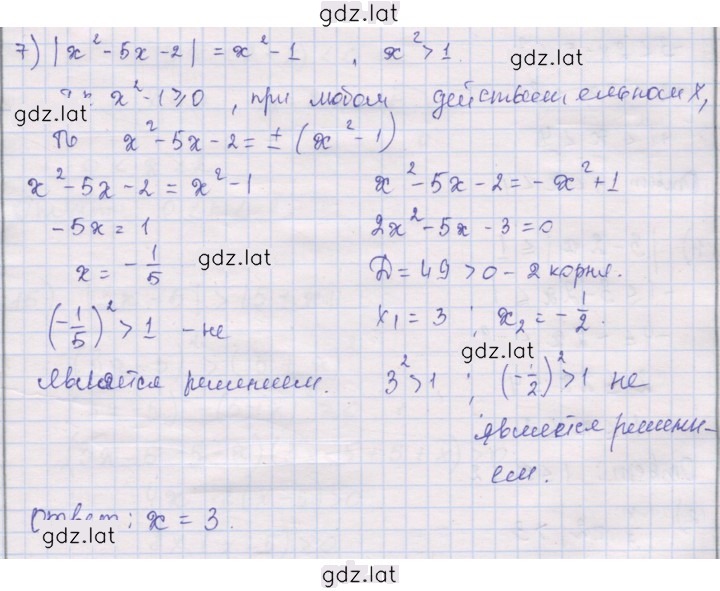 gdz.lat
7) |x² - 5x - 2| = x² - 1 , x² > 1
gdz.lat
x² - 1 ⩾ 0 , при любом действительном x,
gdz.lat
то x² - 5x - 2 = ± (x² - 1)
x² - 5x - 2 = x² - 1
-5x = 1
x = -1/5
gdz.lat
(-1/5)² > 1 - не
является решением.
x² - 5x - 2 = -x² + 1
2x² - 5x - 3 = 0
D = 49 > 0 - 2 корня.
x₁ = 3 ; x₂ = -1/2.
gdz.lat
3² > 1 ; (-1/2)² > 1 не
является решени-
ем.
Ответ: x = 3.
gdz.lat
gdz.lat